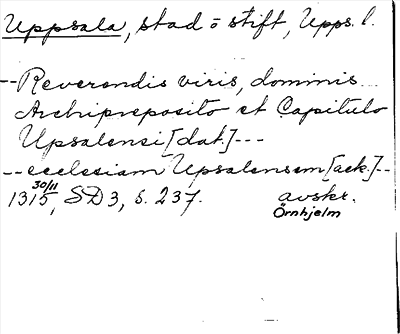 Uppsala, stad o stift, Upps. l.
--Reverendis viris, dominis...
Archipreposito et Capitulo
Upsalensi [dat.] ---
--ecclesiam Upsalensem [ack.]--
30/11
1315, SD 3, s. 237. avskr.
Örnhjelm